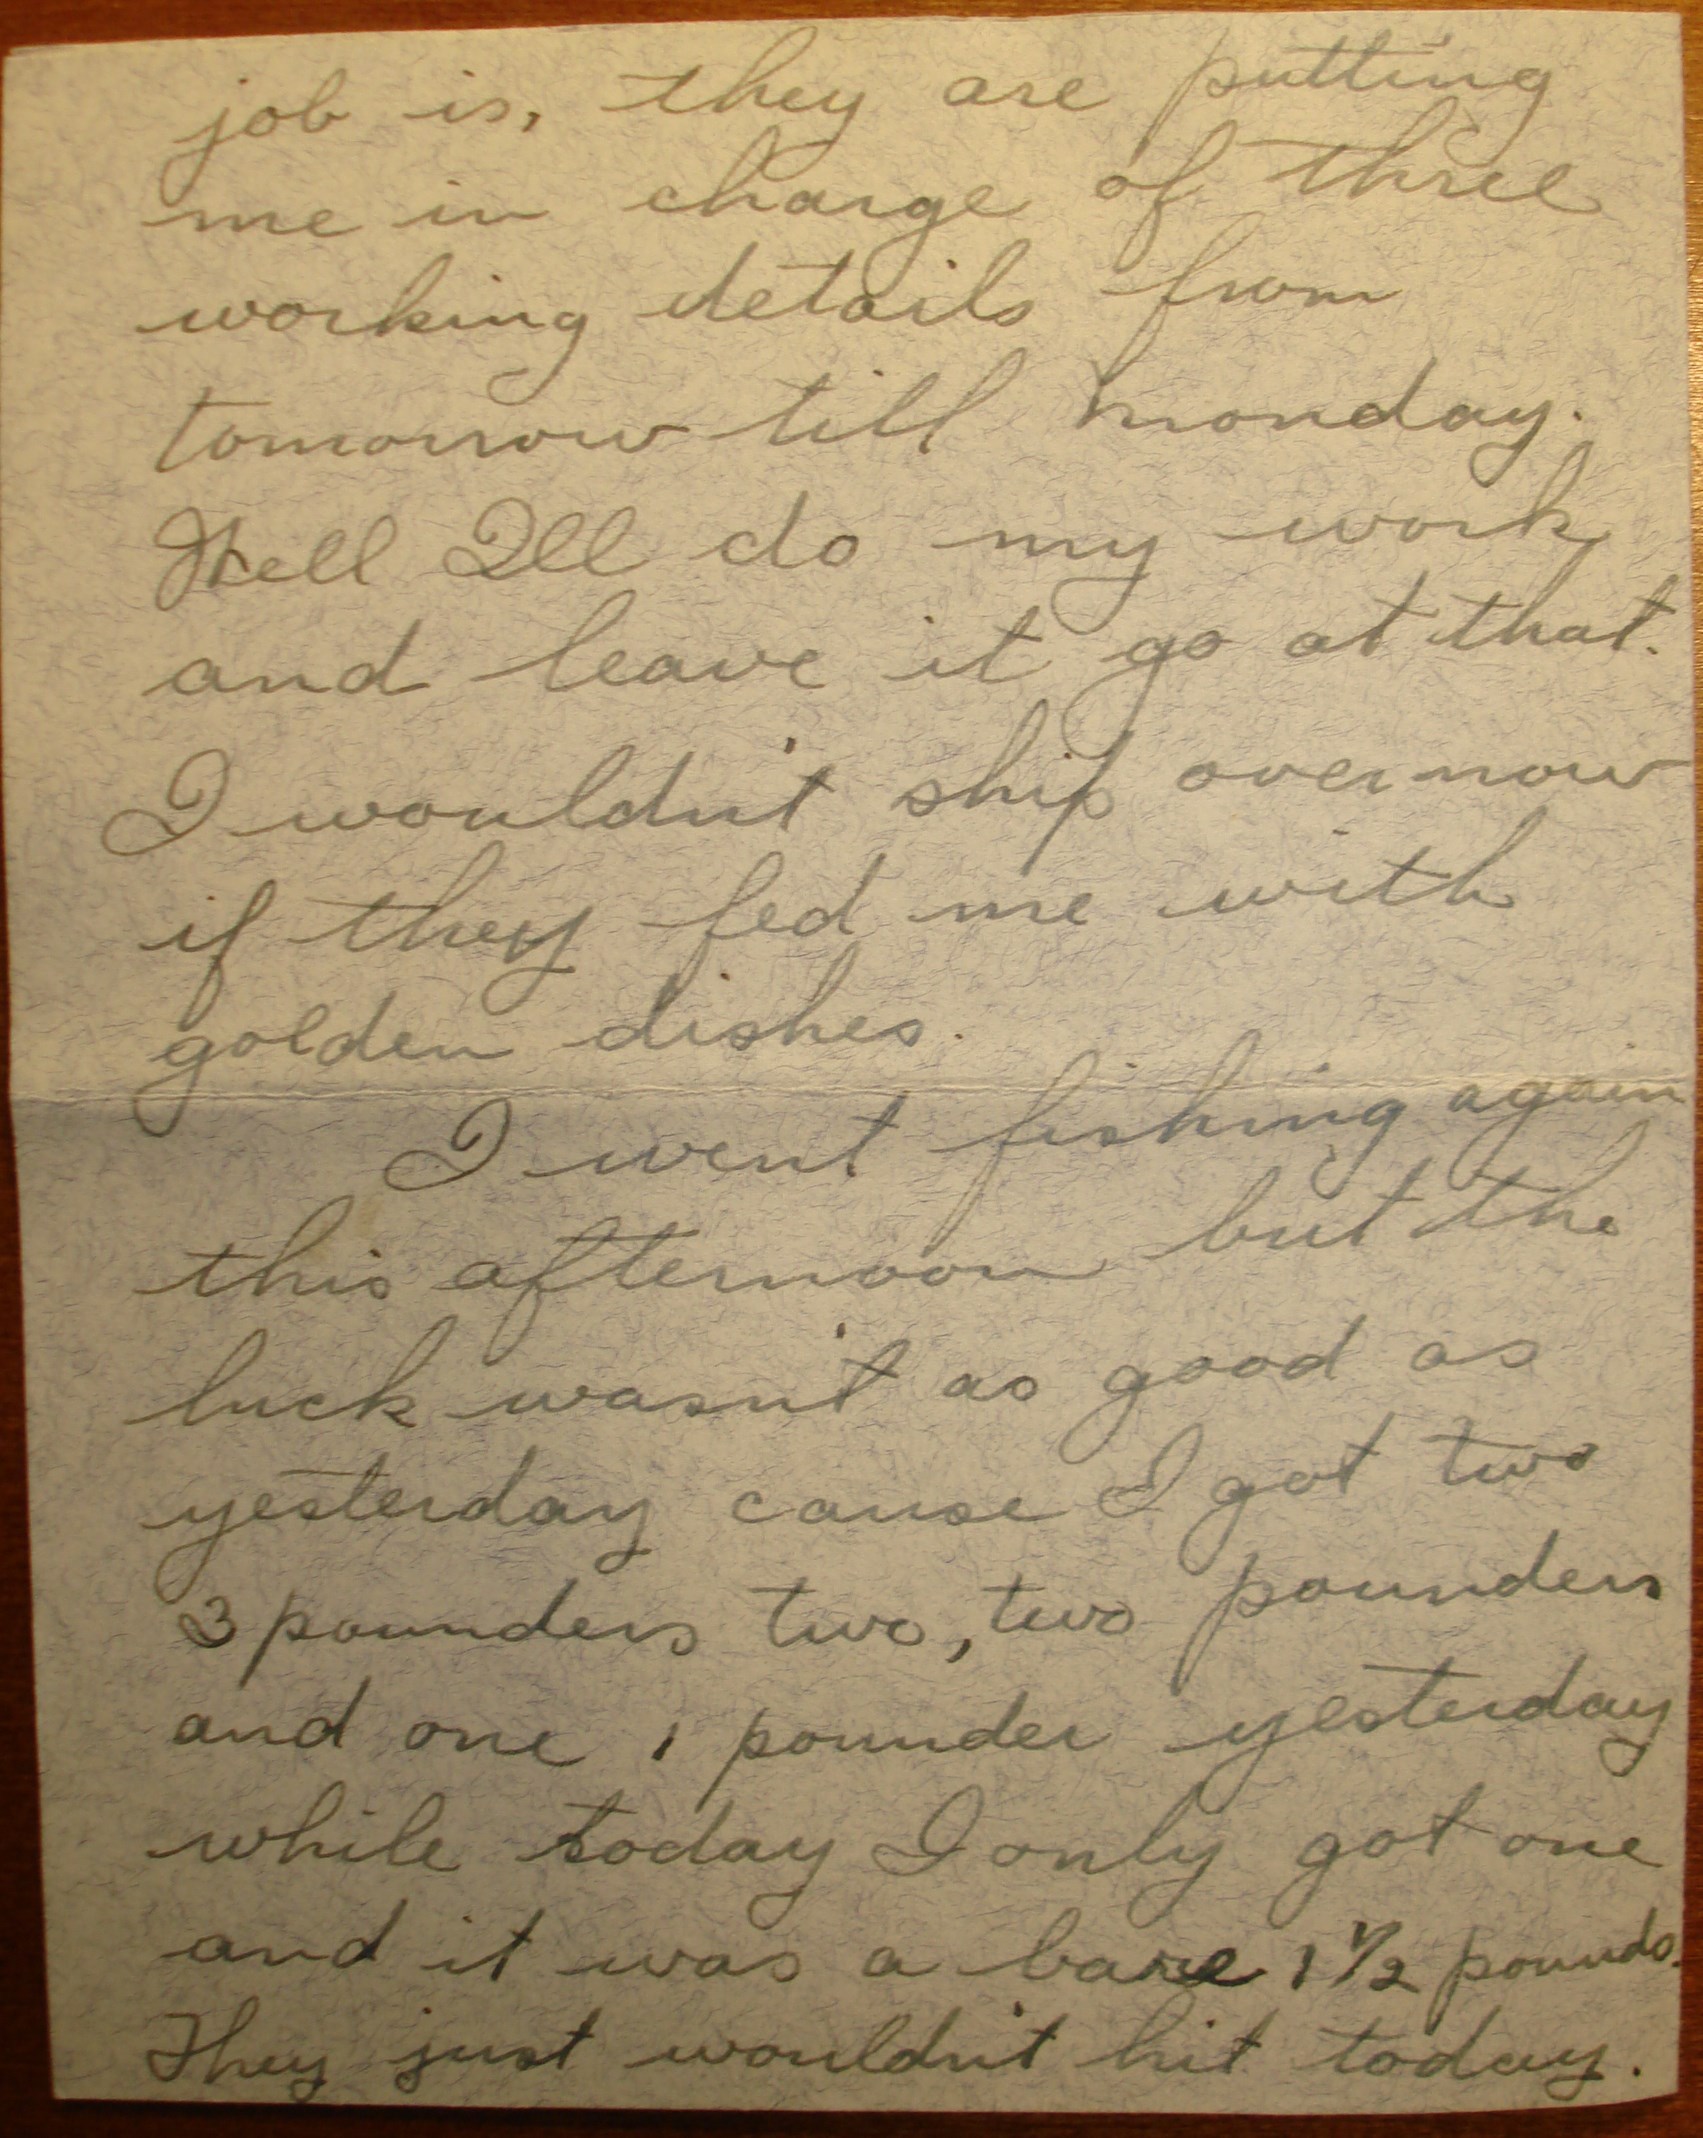 job is, they are putting
me in charge of three
working details from
tomorrow till monday.
Hell Ill do my work
and leave it go at that.
I wouldn't ship over now
if they fed me with
golden dishes.
I went fishing again
this afternoon but the
luck wasn't as good as
yesterday cause I got two
3 pounders two, two pounders
and one 1 pounder yesterday
while today I only got one
and it was a bare 1 1/2 pounds.
They just wouldn't hit today.